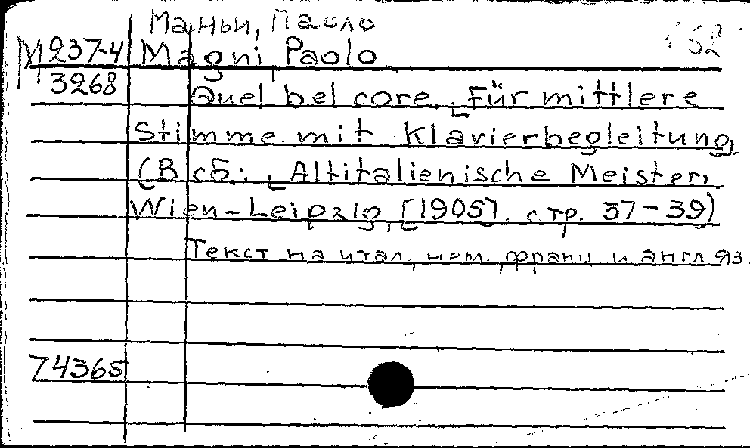 Маньи, Паоло
М237-4 Magni, Paolo
3268
Quel bel core. Für mittlere
Stimme mit Klavierbegleitung,
(В сб.: Altitalienische Meister,
Wien-Leipzig, [1905], стр. 37-39)
Текст на итал, нем, франц и англ яз.
74365